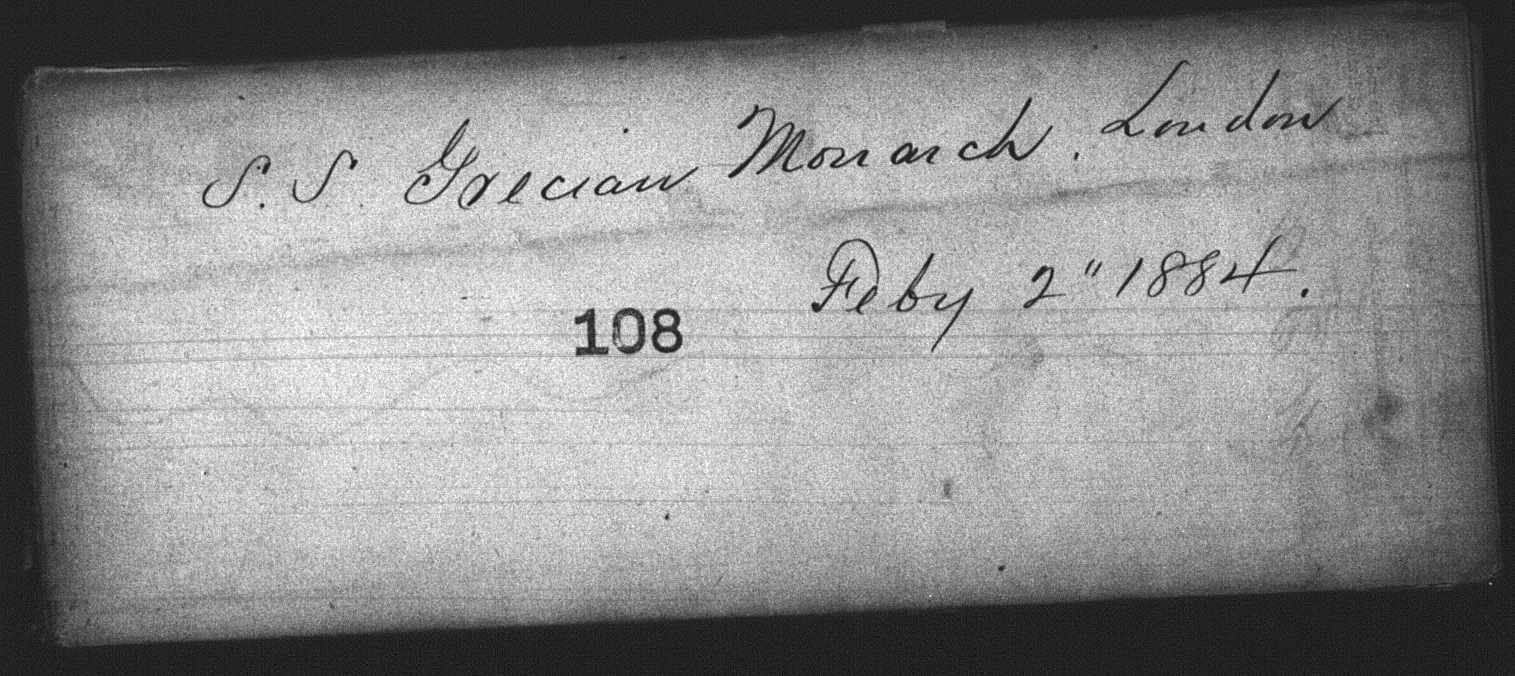 S. S. Grecian Monarch. London
Feby 2" 1884.
108